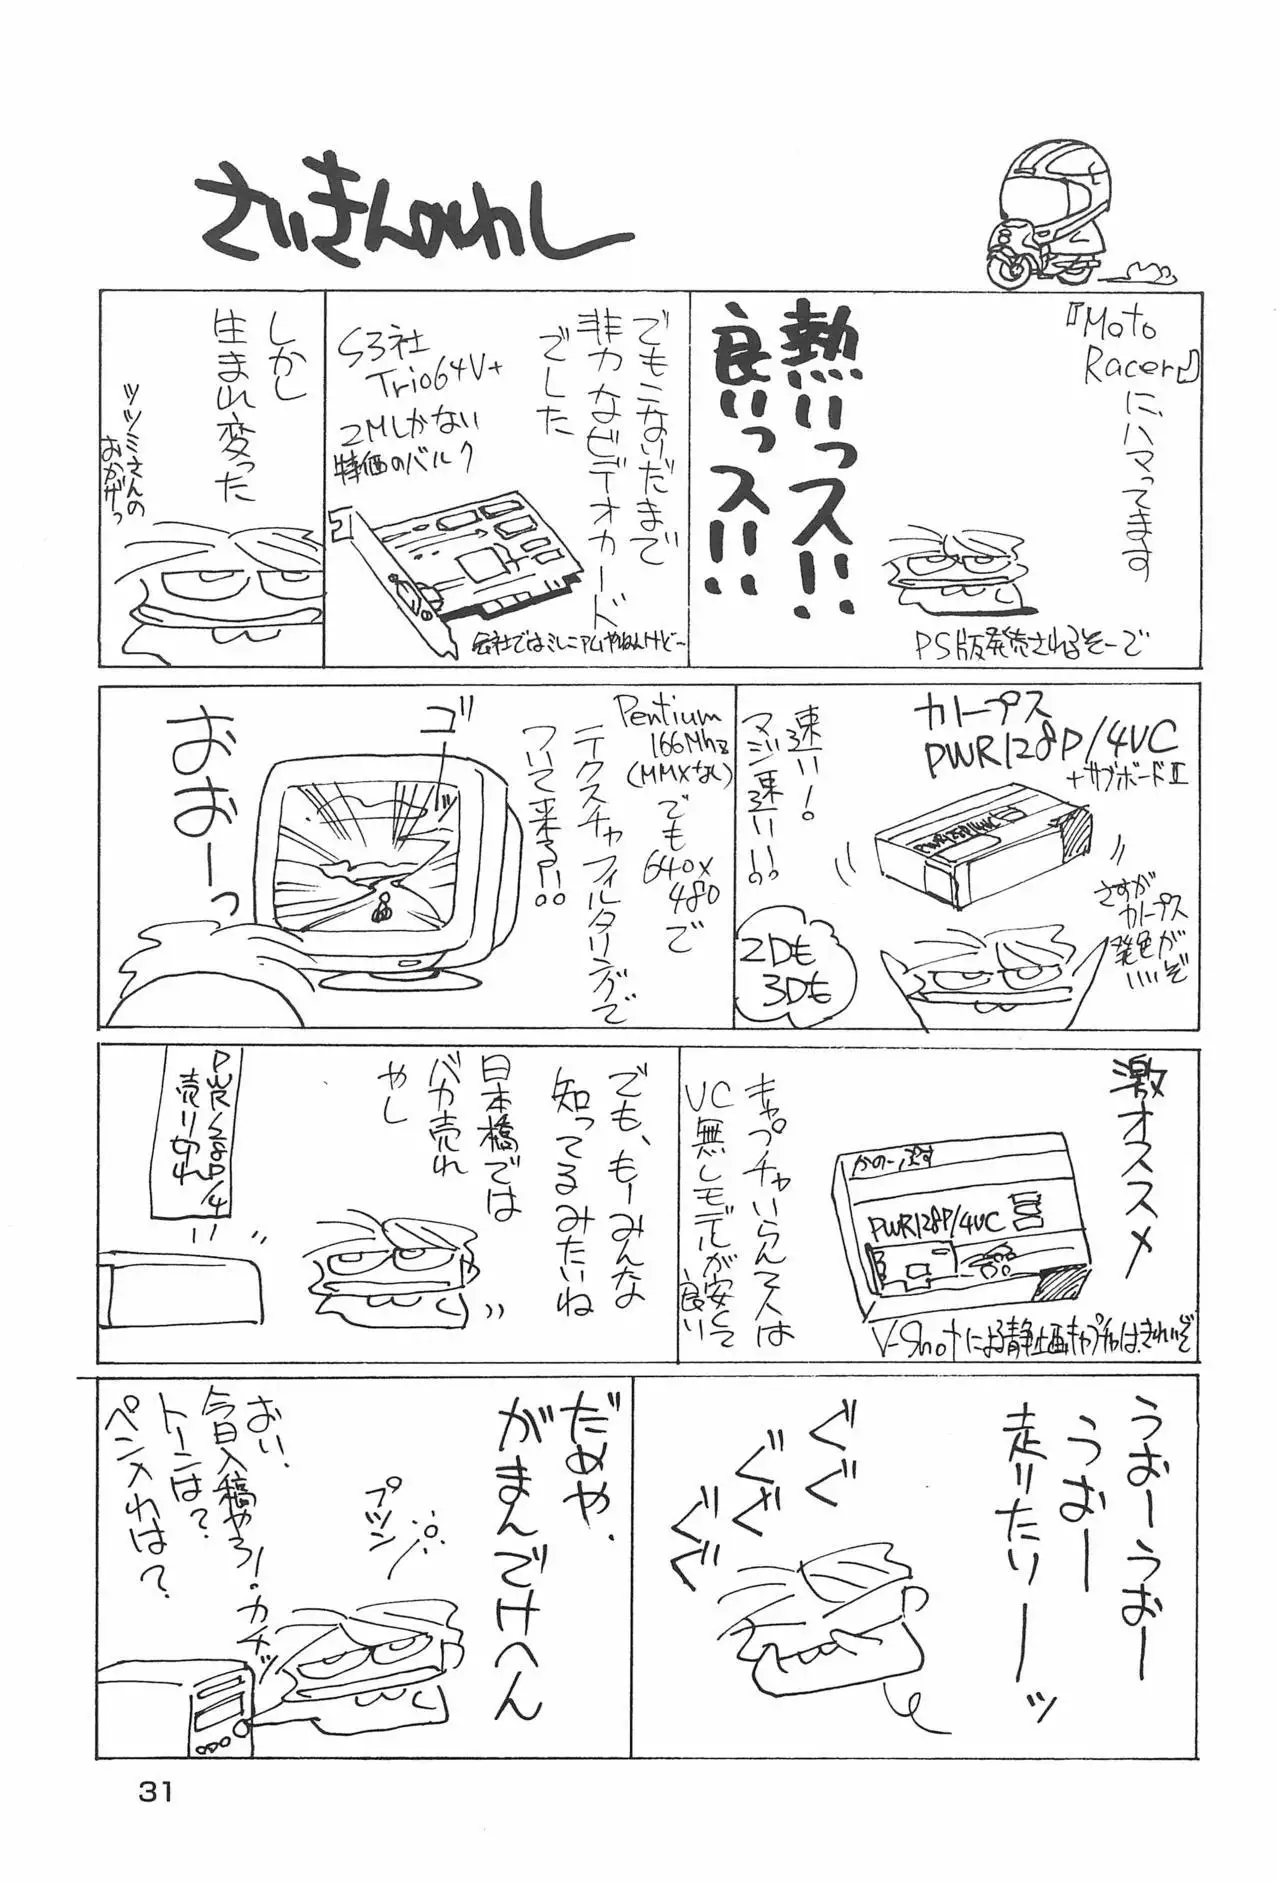 さいきんのわし
『Moto
Racer』
にハマってます
熱いっス!!
良いっス!!
PS版発売されるそーで
でもこないだまで
非力なビデオカード
でした
S3社
Trio64V+
2Mしかない
特価のバルク
会社ではミレニアムやねんけどー
しかし
生まれ変った
ツツミさんの
おかげっ
カノープス
PWR128P/4VC
+サブボードⅡ
PWR128P/4VC
速い!
マジ速い!!
2Dも
3Dも
さすが
カノープス
発色が
いいぞ
Pentium
166Mhz
(MMXなし)
でも
640×
480で
テクスチャフィルタリングで
ついて来る!?
ゴ
ゴ
おおーっ
激オススメ
かのーぷす
PWR128P/4VC
V-Shotによる静止画キャプチャはきれいぞ
キャプチャいらん人は
VC無しモデルが安くて
良い
でも、もーみんな
知ってるみたいね
日本橋では
バカ売れ
やし
PWR128P/4
売り切れ
うおーうおー
うおー
走りたりーーッ
ぐぐ
ぐぐ
ぐぐ
だめや、
がまんでけへん
プツン
おい、
今日入稿やろ!
トーンは?
ペン入れは?
カチッ
31